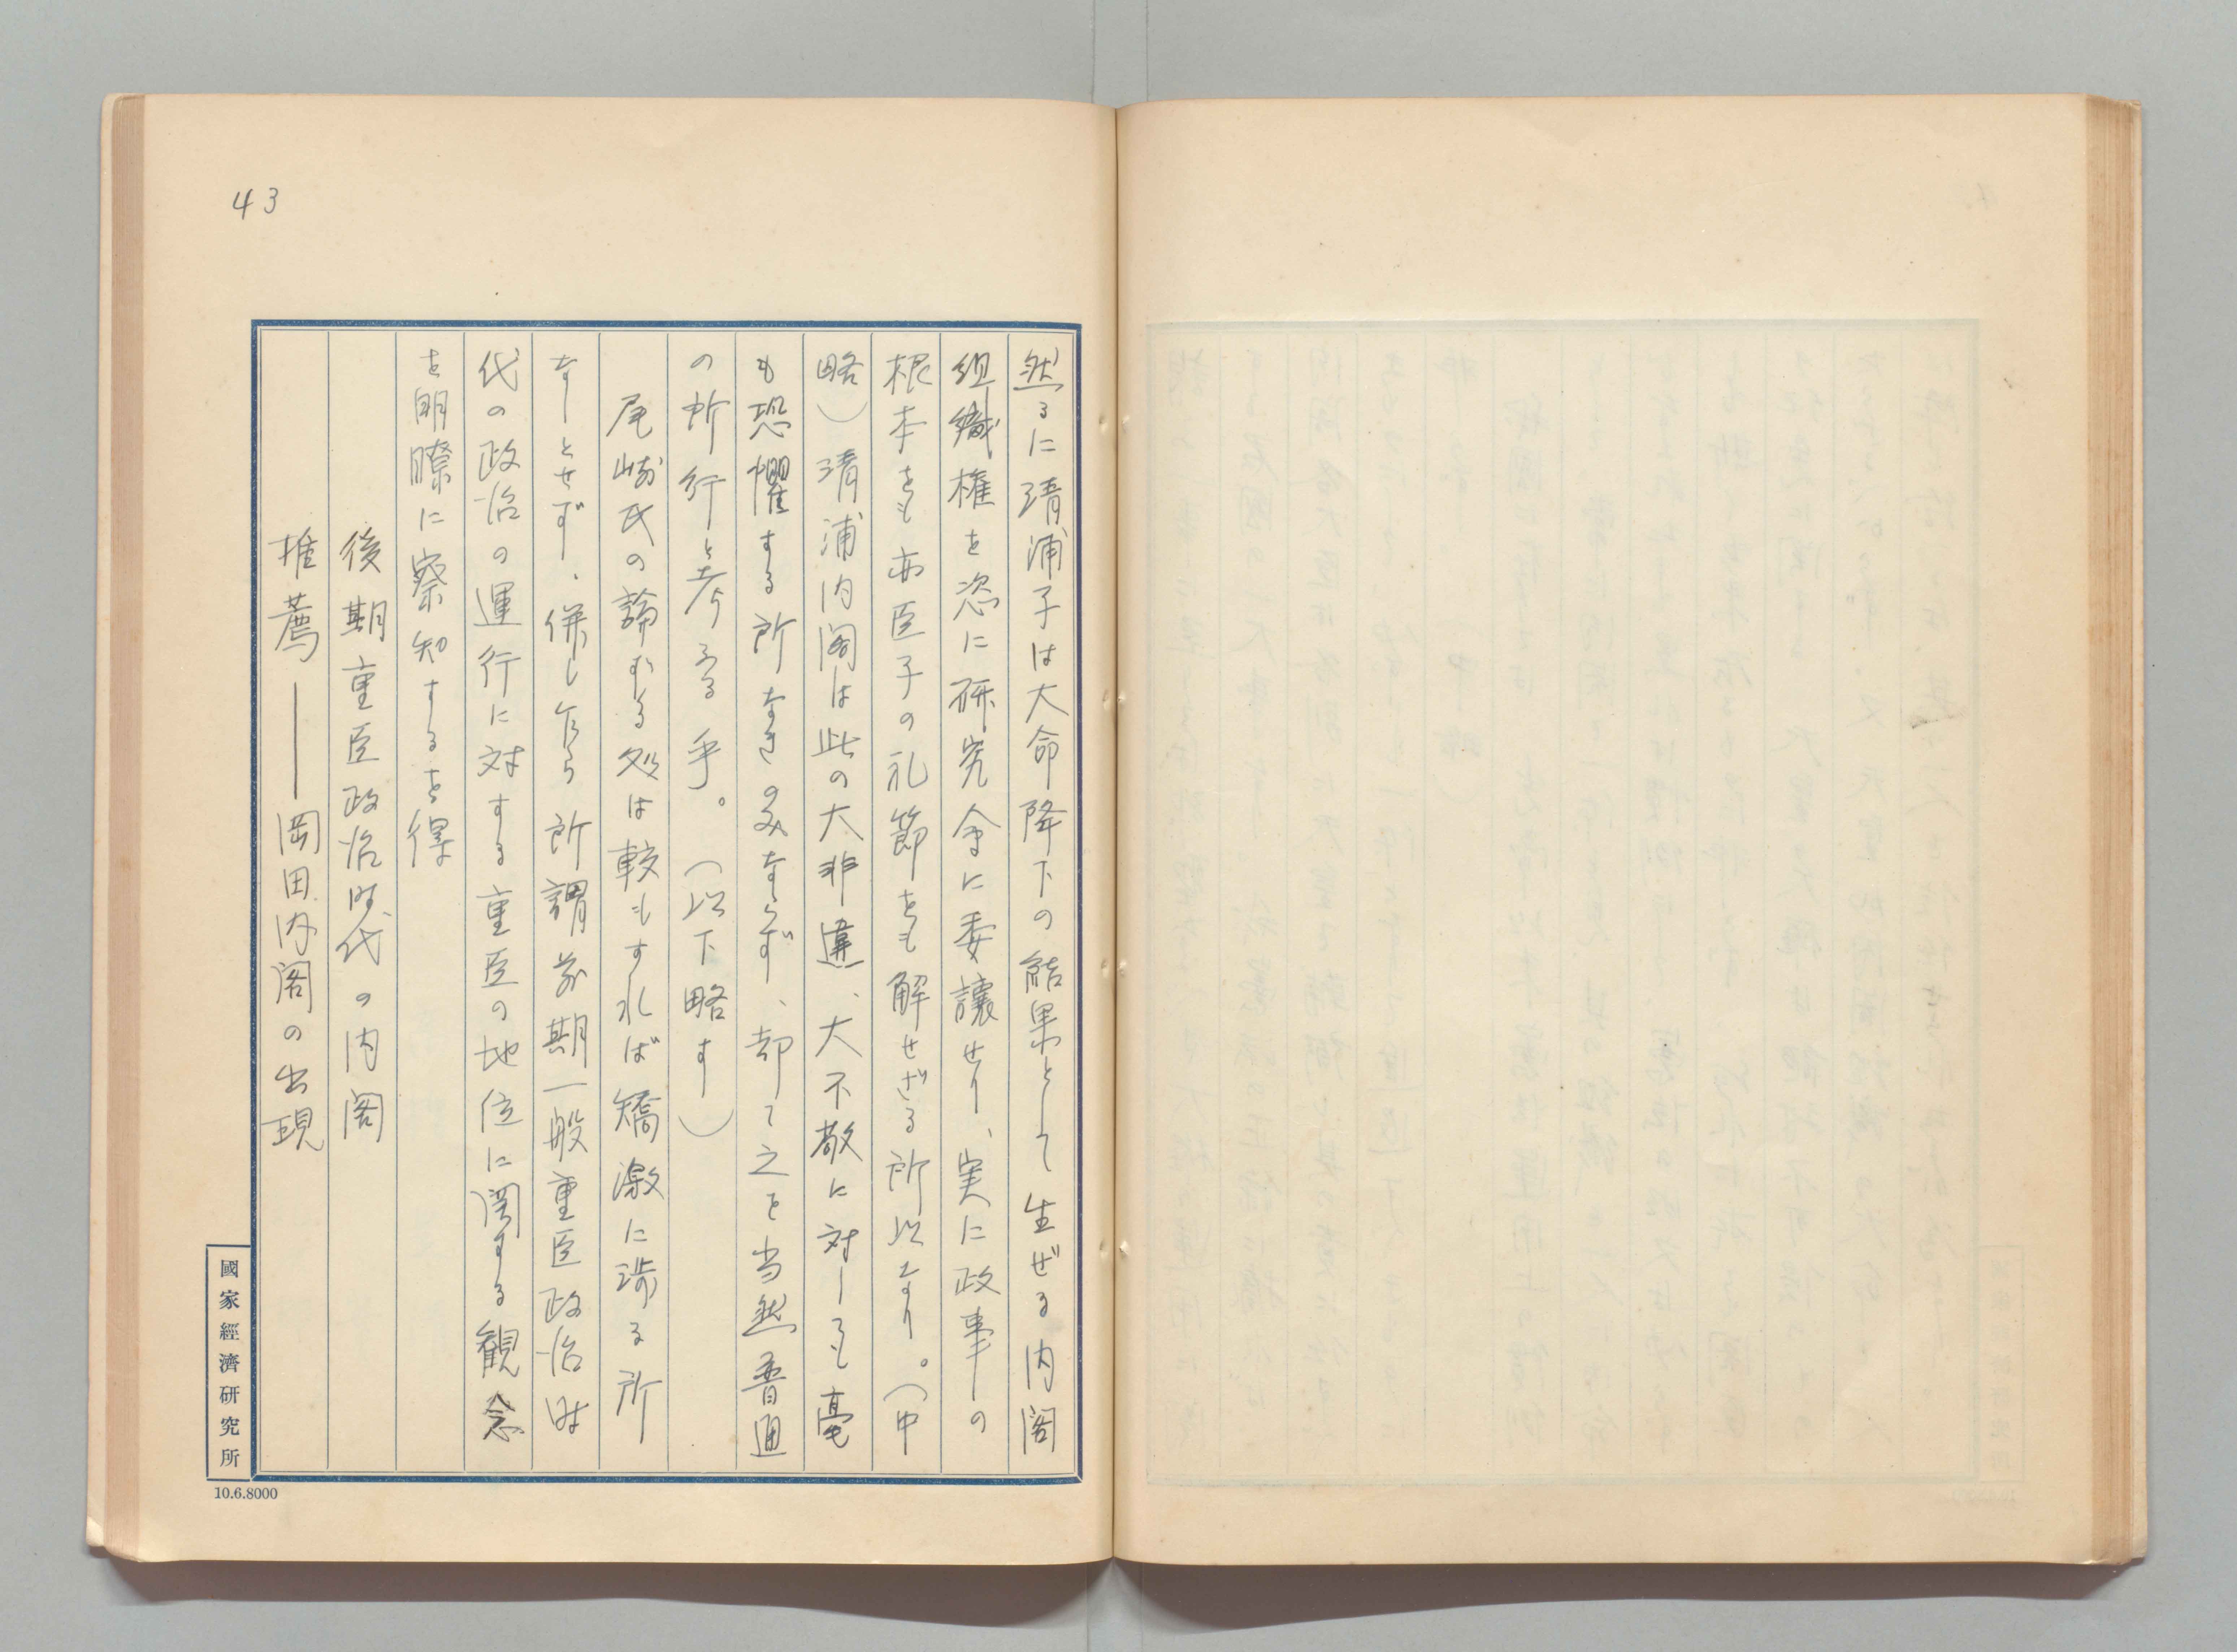 43
然るに清浦子は大命降下の結果として生ぜる内閣
組織権を恣に研究会に委譲せり、実に政事の
根本をも亦臣子の礼節をも解せざる所以なり。（中
略）清浦内閣は此の大非違、大不敬に対しても毫
も恐懼する所なきのみならず、却て之を当然普通
の所行と考ふる乎。（以下略す）
尾崎氏の論ずる処は較もすれば矯激に渉る所
なしとせず、併し乍ら所謂前期一般重臣政治時
代の政治の運行に対する重臣の地位に関する観念
を明瞭に察知するを得
後期重臣政治時代の内閣
推薦――岡田内閣の出現
國家經濟研究所
10.6.8000